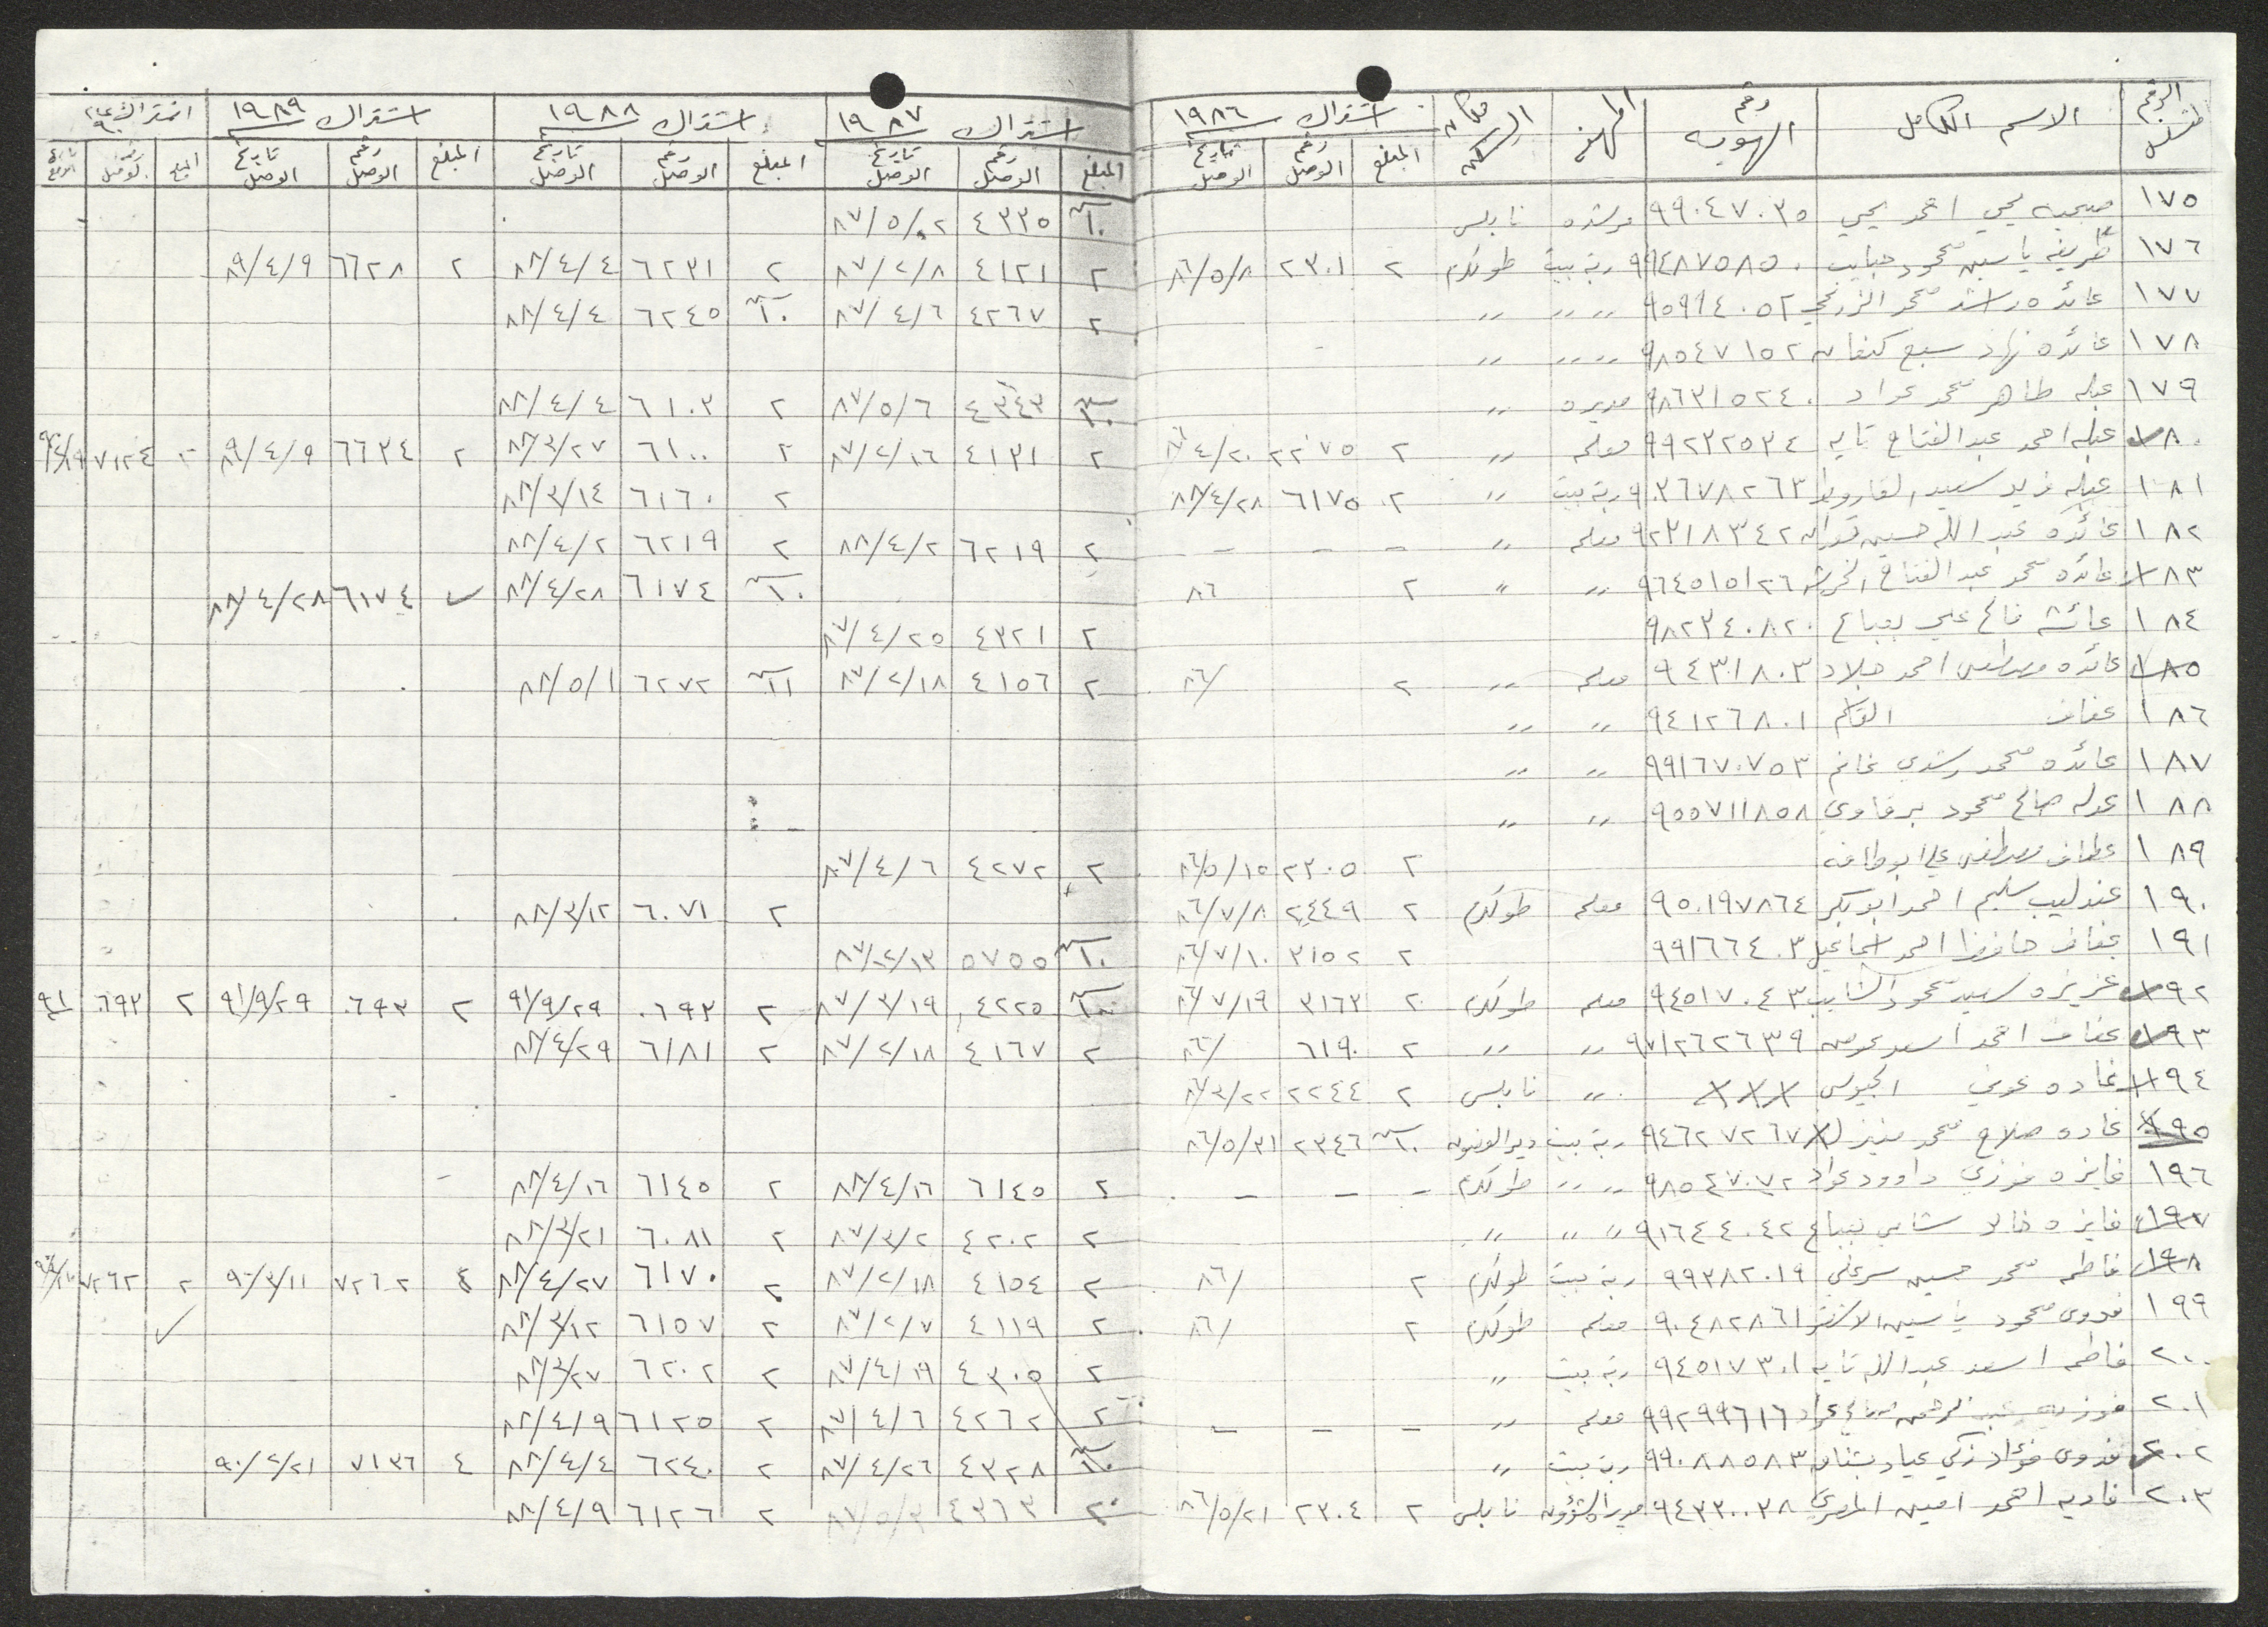 الرقم المتسلسل الاسم الكامل رقم الهويه المهنه مكان السكن اشتراك ١٩٨٦ اشتراك ١٩٨٧ اشتراك ١٩٨٨ اشتراك ١٩٨٩ اشتراك عام ٩٠
المبلغ رقم الوصل تاريخ الوصل المبلغ رقم الوصل تاريخ الوصل المبلغ رقم الوصل تاريخ الوصل المبلغ رقم الوصل تاريخ الوصل المبلغ رقم الوصل تاريخ الوصل
١٧٥ صبحيه يحي احمد يحي ٩٩٠٤٧٠٣٥ مرشده نابلس ٤٣٣٥ ٨٧/٥/٠٢
١٧٦ ظريفه ياسين محمود حبايب ٩٩٤٨٧٥٨٥٠ ربة بيت طولكرم ٢ ٢٣٠١ ٨٦/٥/٨ ٢ ٤١٢١ ٨٧/٢/٨ ٢ ٦٢٣١ ٨٨/٤/٤ ٢ ٦٦٢٨ ٨٩/٤/٩
١٧٧ عائده راشد محمد ٩٥٩٩٤٠٥٢ ,, ,, ,, ٢ ٤٢٦٧ ٨٧/٤/٦ ٦٢٤٥ ٨٨/٤/٤
١٧٨ عائده نهاد سبع كنعان ٩٨٥٤٧١٥٢ ,, ,, ,,
١٧٩ عبله طاهر محمد عواد ٩٨٦٣١٥٢٤٠ مديره ,, ٤٣٤٣ ٨٧/٥/٦ ٢ ٦١٠٣ ٨٨/٤/٤
١٨٠ عبله احمد عبد الفتاح تايه ٩٩٢٣٢٥٣٤ معلمه ,, ٢ ٢٢٧٥ ٨٦/٤/٢٠ ٢ ٤١٣١ ٨٧/٢/١٦ ٢ ٦١٠٠ ٨٨/٣/٢٧ ٢ ٦٦٣٤ ٨٩/٤/٩ ٢ ٧١٢٤
١٨١ عبله فريد سعيد ٩٠٣٦٧٨٢٦٣ ربة بيت ,, ٢ ٦١٧٥ ٨٨/٤/٢٨ ٢ ٦١٦٠ ٨٨/٣/١٤
١٨٢ عائده عبد الله حسين ٩٢٣١٨٣٤٢ معلمه ,, - - - ٢ ٦٢١٩ ٨٨/٤/٢ ٢ ٦٢١٩ ٨٨/٤/٢
١٨٣ عائده محمد عبد الفتاح ٩٦٤٥١٥١٢٦ ,, ,, ٢ ٨٦ ٦١٧٤ ٨٨/٤/٢٨ ٦١٧٤ ٨٨/٤/٢٨
١٨٤ عائشه فالح علي بعباع ٩٨٢٣٤٠٨٢٠ ٢ ٤٣٢١ ٨٧/٤/٢٥
١٨٥ عائده مصطفى احمد جلاد ٩٤٣٠١٨٠٣ معلمه ,, ٢ /٨٦ ٢ ٤١٥٦ ٨٧/٢/١٨ ٦٢٧٢ ٨٨/٥/١
١٨٦ عفاف القاسم ٩٤١٢٦٨٠١ ,, ,,
١٨٧ عائده محمد رشدي غانم ٩٩١٦٧٠٧٥٣ ,, ,,
١٨٨ عدله صالح محمود برقاوي ٩٥٥٧١١٨٥٨ ,, ,,
١٨٩ عطاف مصطفى علي ٢ ٢٣٠٥ ٨٦/٥/١٥ ٢ ٤٢٧٢ ٨٧/٤/٦
١٩٠ عندليب سليم احمد ابو بكر ٩٥٠١٩٧٨٦٤ معلمه طولكرم ٢ ٢٤٤٩ ٨٦/٧/٨ ٢ ٦٠٧١ ٨٨/٣/١٢
١٩١ عفاف حافظ احمد اسماعيل ٩٩١٦٦٤٠٣ ٢ ٣١٥٢ ٨٦/٧/١٠ ٥٧٥٥ ٨٧/١٢/١٣
١٩٢ عزيزه سعيد محمود الشايب ٩٤٥١٧٠٤٣ معلمه طولكرم ٢ ٣١٦٢ ٨٦/٧/١٩ ٤٢٢٥ ٨٧/٣/١٩ ٢ ٠٦٩٣ ٩١/٩/٢٩ ٢ ٠٦٩٣ ٩١/٩/٢٩ ٢ ٠٦٩٣ ٩١
١٩٣ عفاف احمد اسعد عوض ٩٧١٢٦٢٦٣٩ ,, ,, ٢ ٦١٩٠ /٨٦ ٢ ٤١٦٧ ٨٧/٢/١٨ ٢ ٦١٨١ ٨٨/٤/٢٩
١٩٤ غاده عوني الجيوسي ××× ,, نابلس ٢ ٢٢٤٤ ٨٦/٣/٢٢
١٩٥ غاده صلاح محمد ٩٤٦٢٧٢٦٧ ربة بيت دير الغصون ٢٣٤٦ ٨٦/٥/٣١
١٩٦ فايزه فوزي داوود عواد ٩٨٥٤٧٠٧٢ ,, ,, طولكرم - - - ٢ ٦١٤٥ ٨٨/٤/١٦ ٢ ٦١٤٥ ٨٨/٤/١٦
١٩٧ فايزه خالد شامي بعباع ٩١٦٤٤٠٤٢ ,, ,, ,, ٢ ٤٢٠٢ ٨٧/٣/٢ ٢ ٦٠٨١ ٨٨/٣/٢١
١٩٨ فاطمه محمد حسين سرغلي ٩٩٣٨٢٠١٩ ربة بيت طولكرم ٢ /٨٦ ٢ ٤١٥٤ ٨٧/٢/١٨ ٢ ٦١٧٠ ٨٨/٤/٢٧ ٤ ٧٢٦٢ ٩٠/٣/١١ ٢ ٧٢٦٢
١٩٩ فدوى محمود ياسين ٩٠٤٨٢٨٦١ معلمه طولكرم ٢ /٨٦ ٢ ٤١١٩ ٨٧/٢/٧ ٢ ٦١٥٧ ٨٨/٣/١٢
٢٠٠ فاطمه اسعد عبد الله تايه ٩٤٥١٧٣٠١ ربة بيت ,, ٢ ٤٣٠٥ ٨٧/٤/١٩ ٢ ٦٢٠٢ ٨٨/٣/٢٧
٢٠١ فوزيه عبد الرحمن صالح عواد ٩٩٢٩٩٦١٦ معلمه ,, - - - ٢ ٤٢٦٢ ٨٧/٤/٦ ٢ ٦١٢٥ ٨٨/٤/٩
٢٠٢ فدوى فؤاد زكي عياد ٩٩٠٨٨٥٨٣ ربة بيت ,, ٤٣٢٨ ٨٧/٤/٢٦ ٢ ٦٢٤٠ ٨٨/٤/٤ ٤ ٧١٣٦ ٩٠/٢/٢١
٢٠٣ فاديه احمد امين المصري ٩٤٣٣٠٠٣٨ نابلس ٢ ٢٣٠٤ ٨٦/٥/٢١ ٢ ٤٣٦٣ ٨٧/٥/٣ ٢ ٦١٢٦ ٨٨/٤/٩